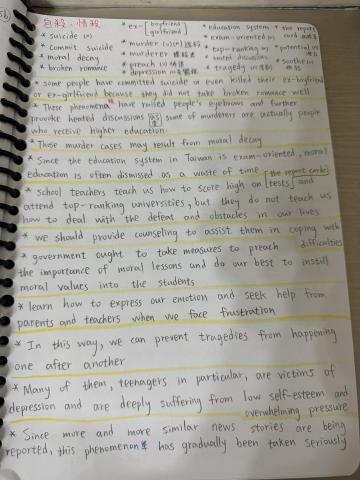 自殺、情殺
* suicide (n)
* commit suicide
* moral decay
* broken romance
* ex- boyfriend
girlfriend
* murder (v)(n) 謀殺
* murderer
* preach (v)
* depression (n)
* education system
* exam-oriented
* top-ranking
* heated discussions
* tragedy (n) 悲劇
* the report card
* potential
* soothe (v)
* some people have committed suicide or even killed their ex-boyfriend
or ex-girlfriend because they did not take broken romance well
* These phenomena have raised people's eyebrows and further
provoke heated discussions as some of murderers are actually people
who receive higher education
* These murder cases may result from moral decay
* Since the education system in Taiwan is exam-oriented, moral
education is often dismissed as a waste of time
* school teachers teach us how to score high on [the report cards] [tests] and
attend top-ranking universities, but they do not teach us
how to deal with the defeat and obstacles in our lives
* we should provide counseling to assist them in coping with
difficulties
* government ought to take measures to preach
the importance of moral lessons and do our best to instill
moral values into the students
* learn how to express our emotion and seek help from
parents and teachers when we face frustration
* In this way, we can prevent tragedies from happening
one after another
* Many of them, teenagers in particular, are victims of
depression and are deeply suffering from low self-esteem and
overwhelming pressure
* Since more and more similar news stories are being
reported, this phenomenon has gradually been taken seriously